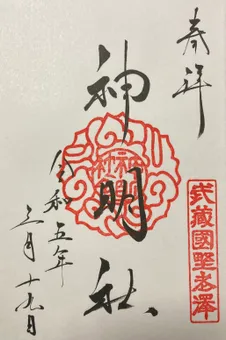 奉拝
武蔵國野老澤
神明社
令和五年
三月十九日